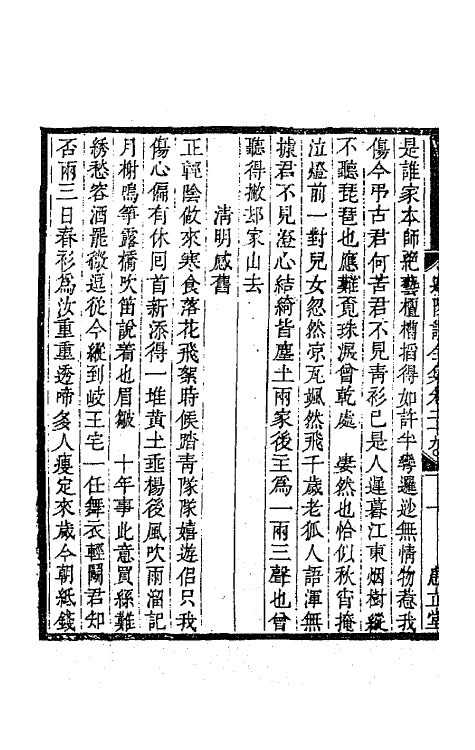 迦陵詞全集卷二十九
患立堂
是誰家本師絕藝檀槽搯得如許半彎邏逤無情物惹我
傷今弔古君何苦君不見青衫已是人遲暮江東烟樹縱
不聽琵琶也應難覓珠淚曾乾處　淒然也恰似秋宵掩
泣燈前一對兒女忽然凉瓦颯然飛千歲老狐人語渾無
據君不見澄心結綺皆塵土兩家後主爲一兩三聲也曾
聽得撇却家山去
清明感舊
正輕陰做來寒食落花飛絮時候踏青隊隊嬉遊侶只我
傷心偏有休回首新添得一堆黃土垂楊後風吹雨溜記
月榭鳴箏露橋吹笛說着也眉皺　十年事此意買絲難
綉愁容酒罷微逗從今縱到岐王宅一任舞衣輕鬭君知
否兩三日春衫爲汝重重透啼多人瘦定來歲今朝紙錢